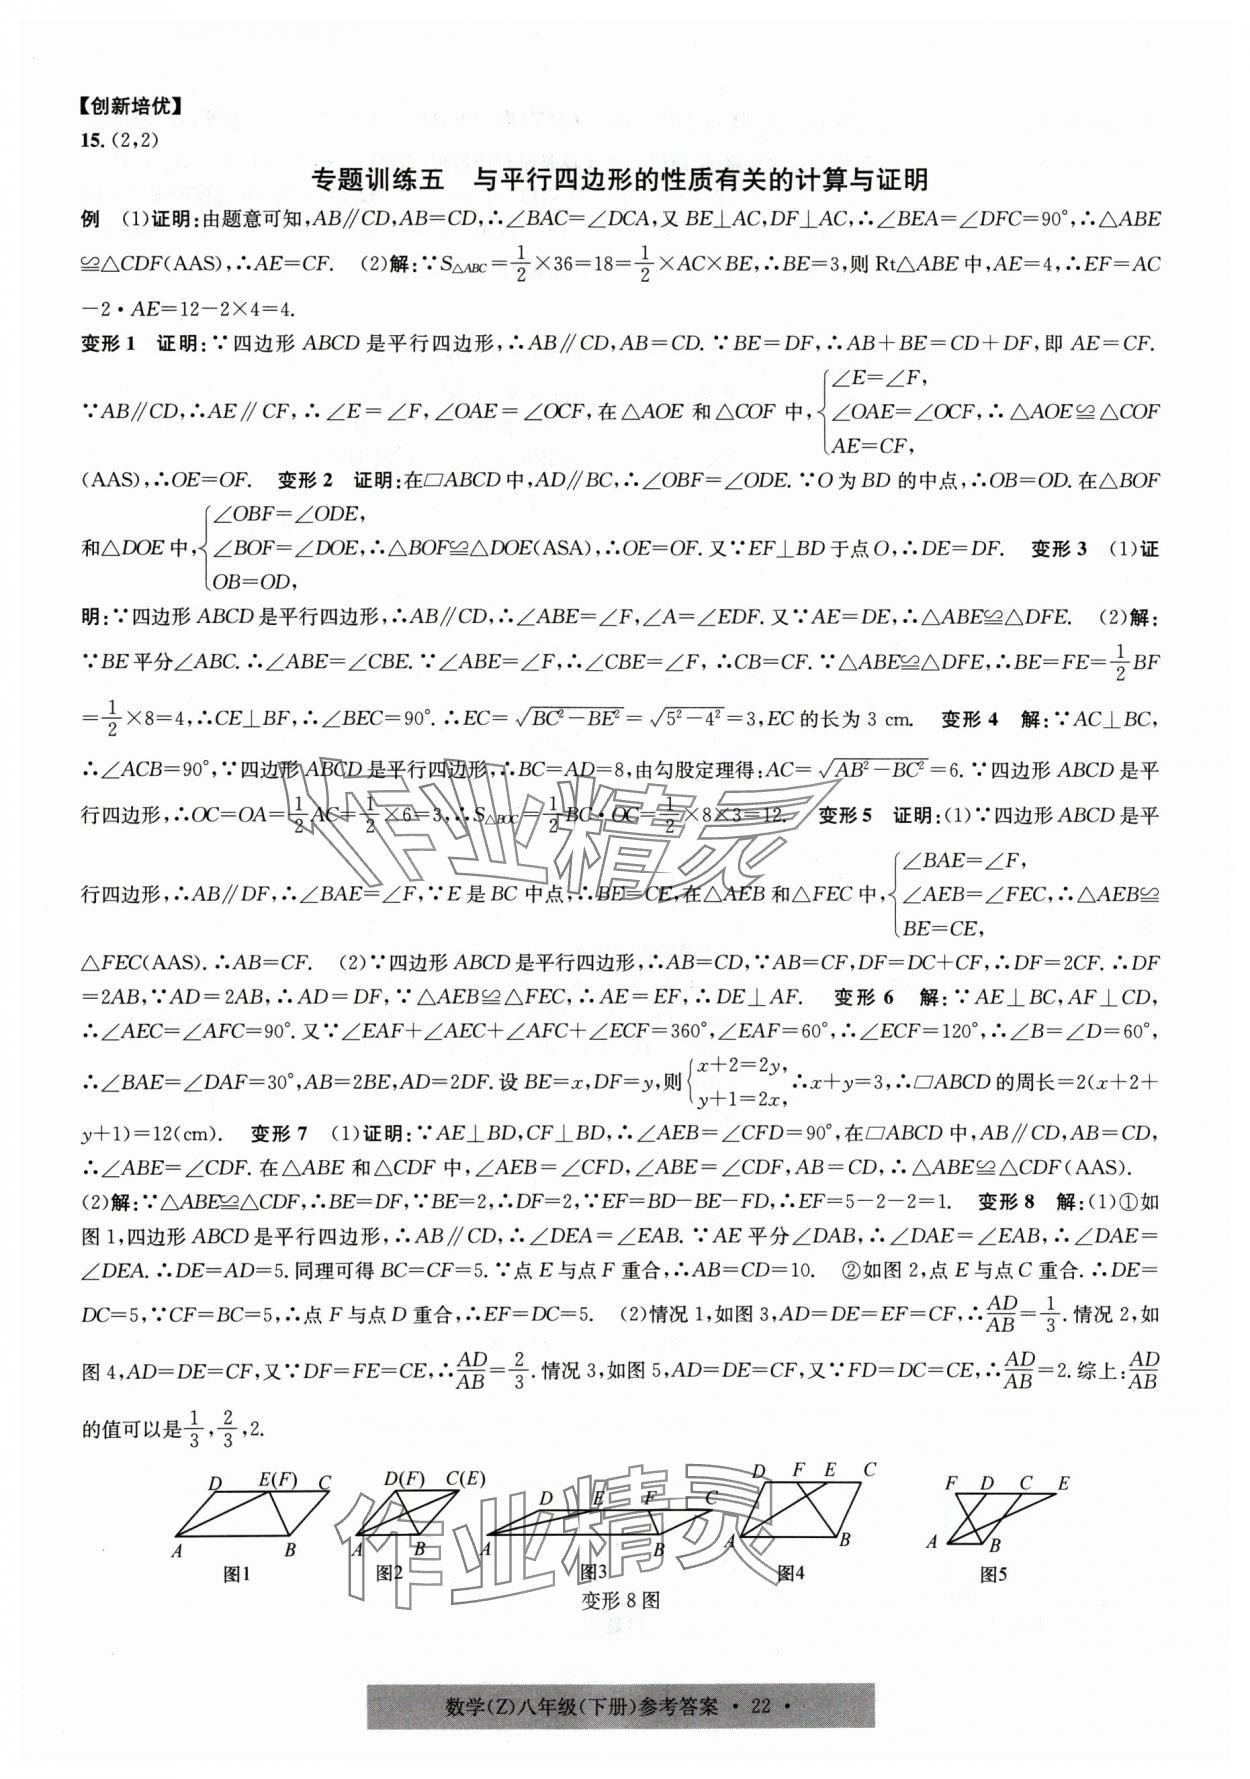 【创新培优】
15. (2,2)
专题训练五　与平行四边形的性质有关的计算与证明
例　(1)证明:由题意可知,AB∥CD,AB=CD,∴∠BAC=∠DCA,又 BE⊥AC,DF⊥AC,∴∠BEA=∠DFC=90°,∴△ABE
≌△CDF(AAS),∴AE=CF.　(2)解:∵S△ABC=1/2×36=18=1/2×AC×BE,∴BE=3,则 Rt△ABE 中,AE=4,∴EF=AC
-2·AE=12-2×4=4.
变形 1　证明:∵四边形 ABCD 是平行四边形,∴AB∥CD,AB=CD. ∵BE=DF,∴AB+BE=CD+DF,即 AE=CF.
∵AB∥CD,∴AE∥CF,∴∠E=∠F,∠OAE=∠OCF,在△AOE 和△COF 中,{∠E=∠F, ∠OAE=∠OCF, AE=CF, ∴△AOE≌△COF
(AAS),∴OE=OF.　变形 2　证明:在□ABCD 中,AD∥BC,∴∠OBF=∠ODE. ∵O 为 BD 的中点,∴OB=OD. 在△BOF
和△DOE 中,{∠OBF=∠ODE, ∠BOF=∠DOE, OB=OD, ∴△BOF≌△DOE(ASA),∴OE=OF. 又∵EF⊥BD 于点 O,∴DE=DF.　变形 3　(1)证
明:∵四边形 ABCD 是平行四边形,∴AB∥CD,∴∠ABE=∠F,∠A=∠EDF. 又∵AE=DE,∴△ABE≌△DFE.　(2)解:
∵BE 平分∠ABC. ∴∠ABE=∠CBE. ∵∠ABE=∠F,∴∠CBE=∠F, ∴CB=CF. ∵△ABE≌△DFE,∴BE=FE=1/2 BF
=1/2×8=4,∴CE⊥BF,∴∠BEC=90°. ∴EC=√(BC²-BE²)=√(5²-4²)=3,EC 的长为 3 cm.　变形 4　解:∵AC⊥BC,
∴∠ACB=90°,∵四边形 ABCD 是平行四边形,∴BC=AD=8,由勾股定理得:AC=√(AB²-BC²)=6. ∵四边形 ABCD 是平
行四边形,∴OC=OA=1/2 AC=1/2×6=3,∴S△BOC=1/2 BC·OC=1/2×8×3=12.　变形 5　证明:(1)∵四边形 ABCD 是平
行四边形,∴AB∥DF,∴∠BAE=∠F,∵E 是 BC 中点,∴BE=CE,在△AEB 和△FEC 中,{∠BAE=∠F, ∠AEB=∠FEC, BE=CE, ∴△AEB≌
△FEC(AAS). ∴AB=CF.　(2)∵四边形 ABCD 是平行四边形,∴AB=CD,∵AB=CF,DF=DC+CF,∴DF=2CF. ∴DF
=2AB,∵AD=2AB,∴AD=DF,∵△AEB≌△FEC,∴AE=EF,∴DE⊥AF.　变形 6　解:∵AE⊥BC,AF⊥CD,
∴∠AEC=∠AFC=90°. 又∵∠EAF+∠AEC+∠AFC+∠ECF=360°,∠EAF=60°,∴∠ECF=120°,∴∠B=∠D=60°,
∴∠BAE=∠DAF=30°,AB=2BE,AD=2DF. 设 BE=x,DF=y,则{x+2=2y, y+1=2x, ∴x+y=3,∴□ABCD 的周长=2(x+2+
y+1)=12(cm).　变形 7　(1)证明:∵AE⊥BD,CF⊥BD,∴∠AEB=∠CFD=90°,在□ABCD 中,AB∥CD,AB=CD,
∴∠ABE=∠CDF. 在△ABE 和△CDF 中,∠AEB=∠CFD,∠ABE=∠CDF,AB=CD,∴△ABE≌△CDF(AAS).
(2)解:∵△ABE≌△CDF,∴BE=DF,∵BE=2,∴DF=2,∵EF=BD-BE-FD,∴EF=5-2-2=1.　变形 8　解:(1)①如
图 1,四边形 ABCD 是平行四边形,∴AB∥CD,∴∠DEA=∠EAB. ∵AE 平分∠DAB,∴∠DAE=∠EAB,∴∠DAE=
∠DEA. ∴DE=AD=5. 同理可得 BC=CF=5. ∵点 E 与点 F 重合,∴AB=CD=10.　②如图 2,点 E 与点 C 重合. ∴DE=
DC=5,∵CF=BC=5,∴点 F 与点 D 重合,∴EF=DC=5.　(2)情况 1,如图 3,AD=DE=EF=CF,∴AD/AB=1/3. 情况 2,如
图 4,AD=DE=CF,又∵DF=FE=CE,∴AD/AB=2/3. 情况 3,如图 5,AD=DE=CF,又∵FD=DC=CE,∴AD/AB=2. 综上:AD/AB
的值可以是 1/3, 2/3, 2.
D E(F) C
A B
图1
D(F) C(E)
A B
图2
D E F C
A B
图3
D F E C
A B
图4
F D C E
A B
图5
变形 8 图
数学(Z)八年级(下册)参考答案 · 22 ·
作业精灵
作业精灵